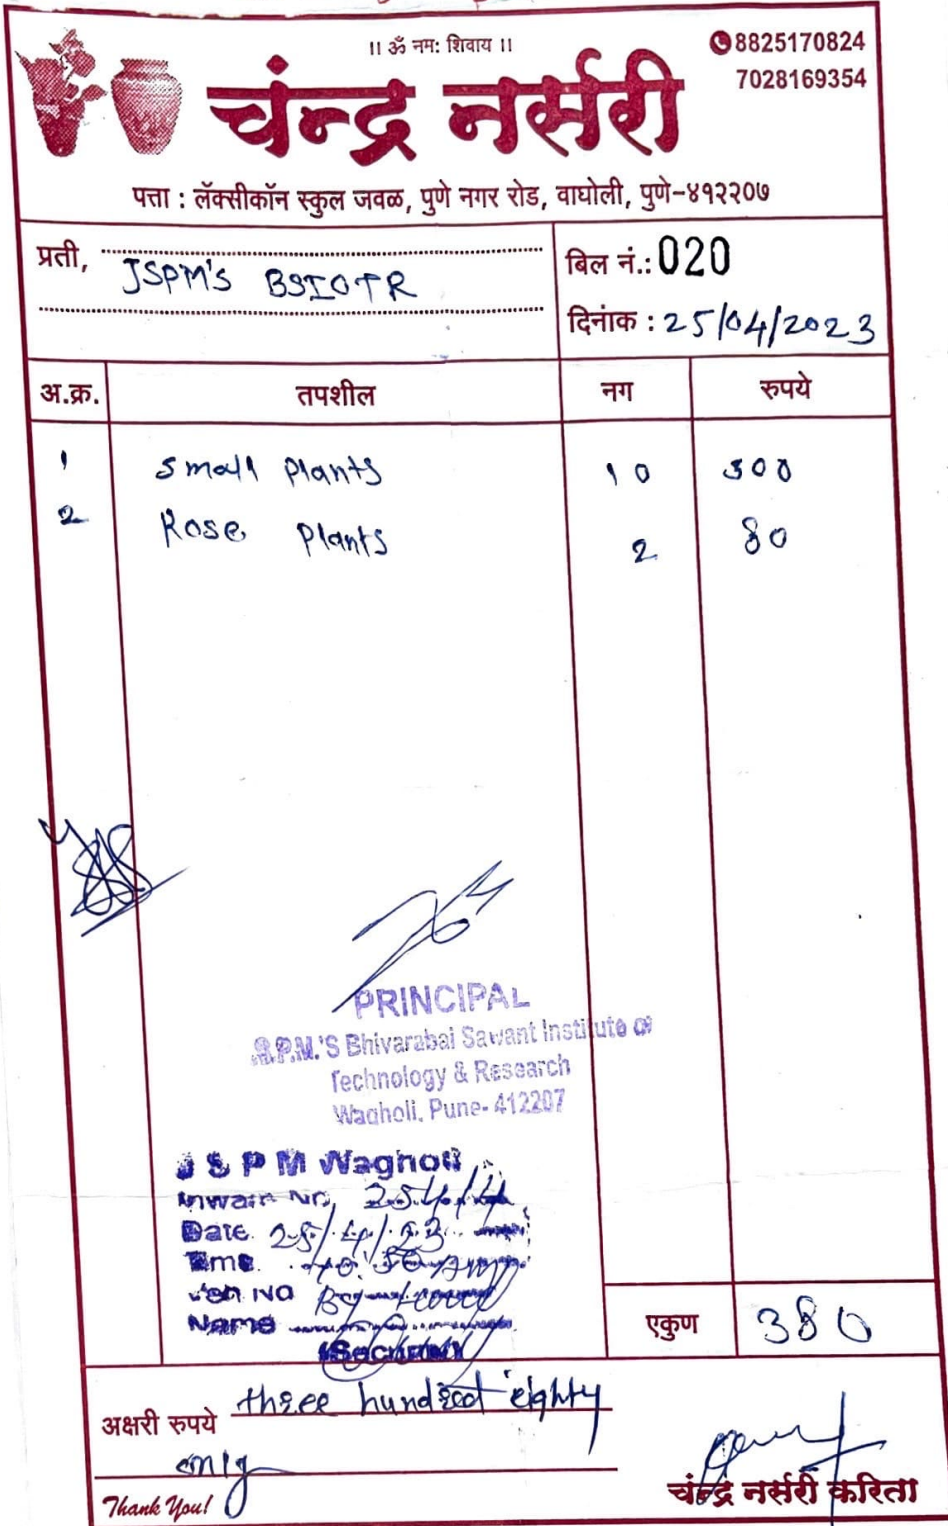 ।। ॐ नम: शिवाय ।।
8825170824
7028169354
चंन्द्र नर्सरी
पत्ता : लॅक्सीकॉन स्कुल जवळ, पुणे नगर रोड, वाघोली, पुणे-४१२२०७
प्रती, JSPM's BSIOTR
बिल नं.: 020
दिनांक : 25/04/2023
अ.क्र. तपशील नग रुपये
1 Small Plants 10 300
2 Rose Plants 2 80
PRINCIPAL
S.P.M.'S Bhivarabai Sawant Institute of
Technology & Research
Wagholi, Pune- 412207
J S P M Wagholi
Inward Nr. 254/4
Date 25/4/23
Time 10:30 Am
Veh No By Hand
Name
(Security)
एकुण 380
अक्षरी रुपये three hundred eighty
only
Thank You!
चंन्द्र नर्सरी करिता